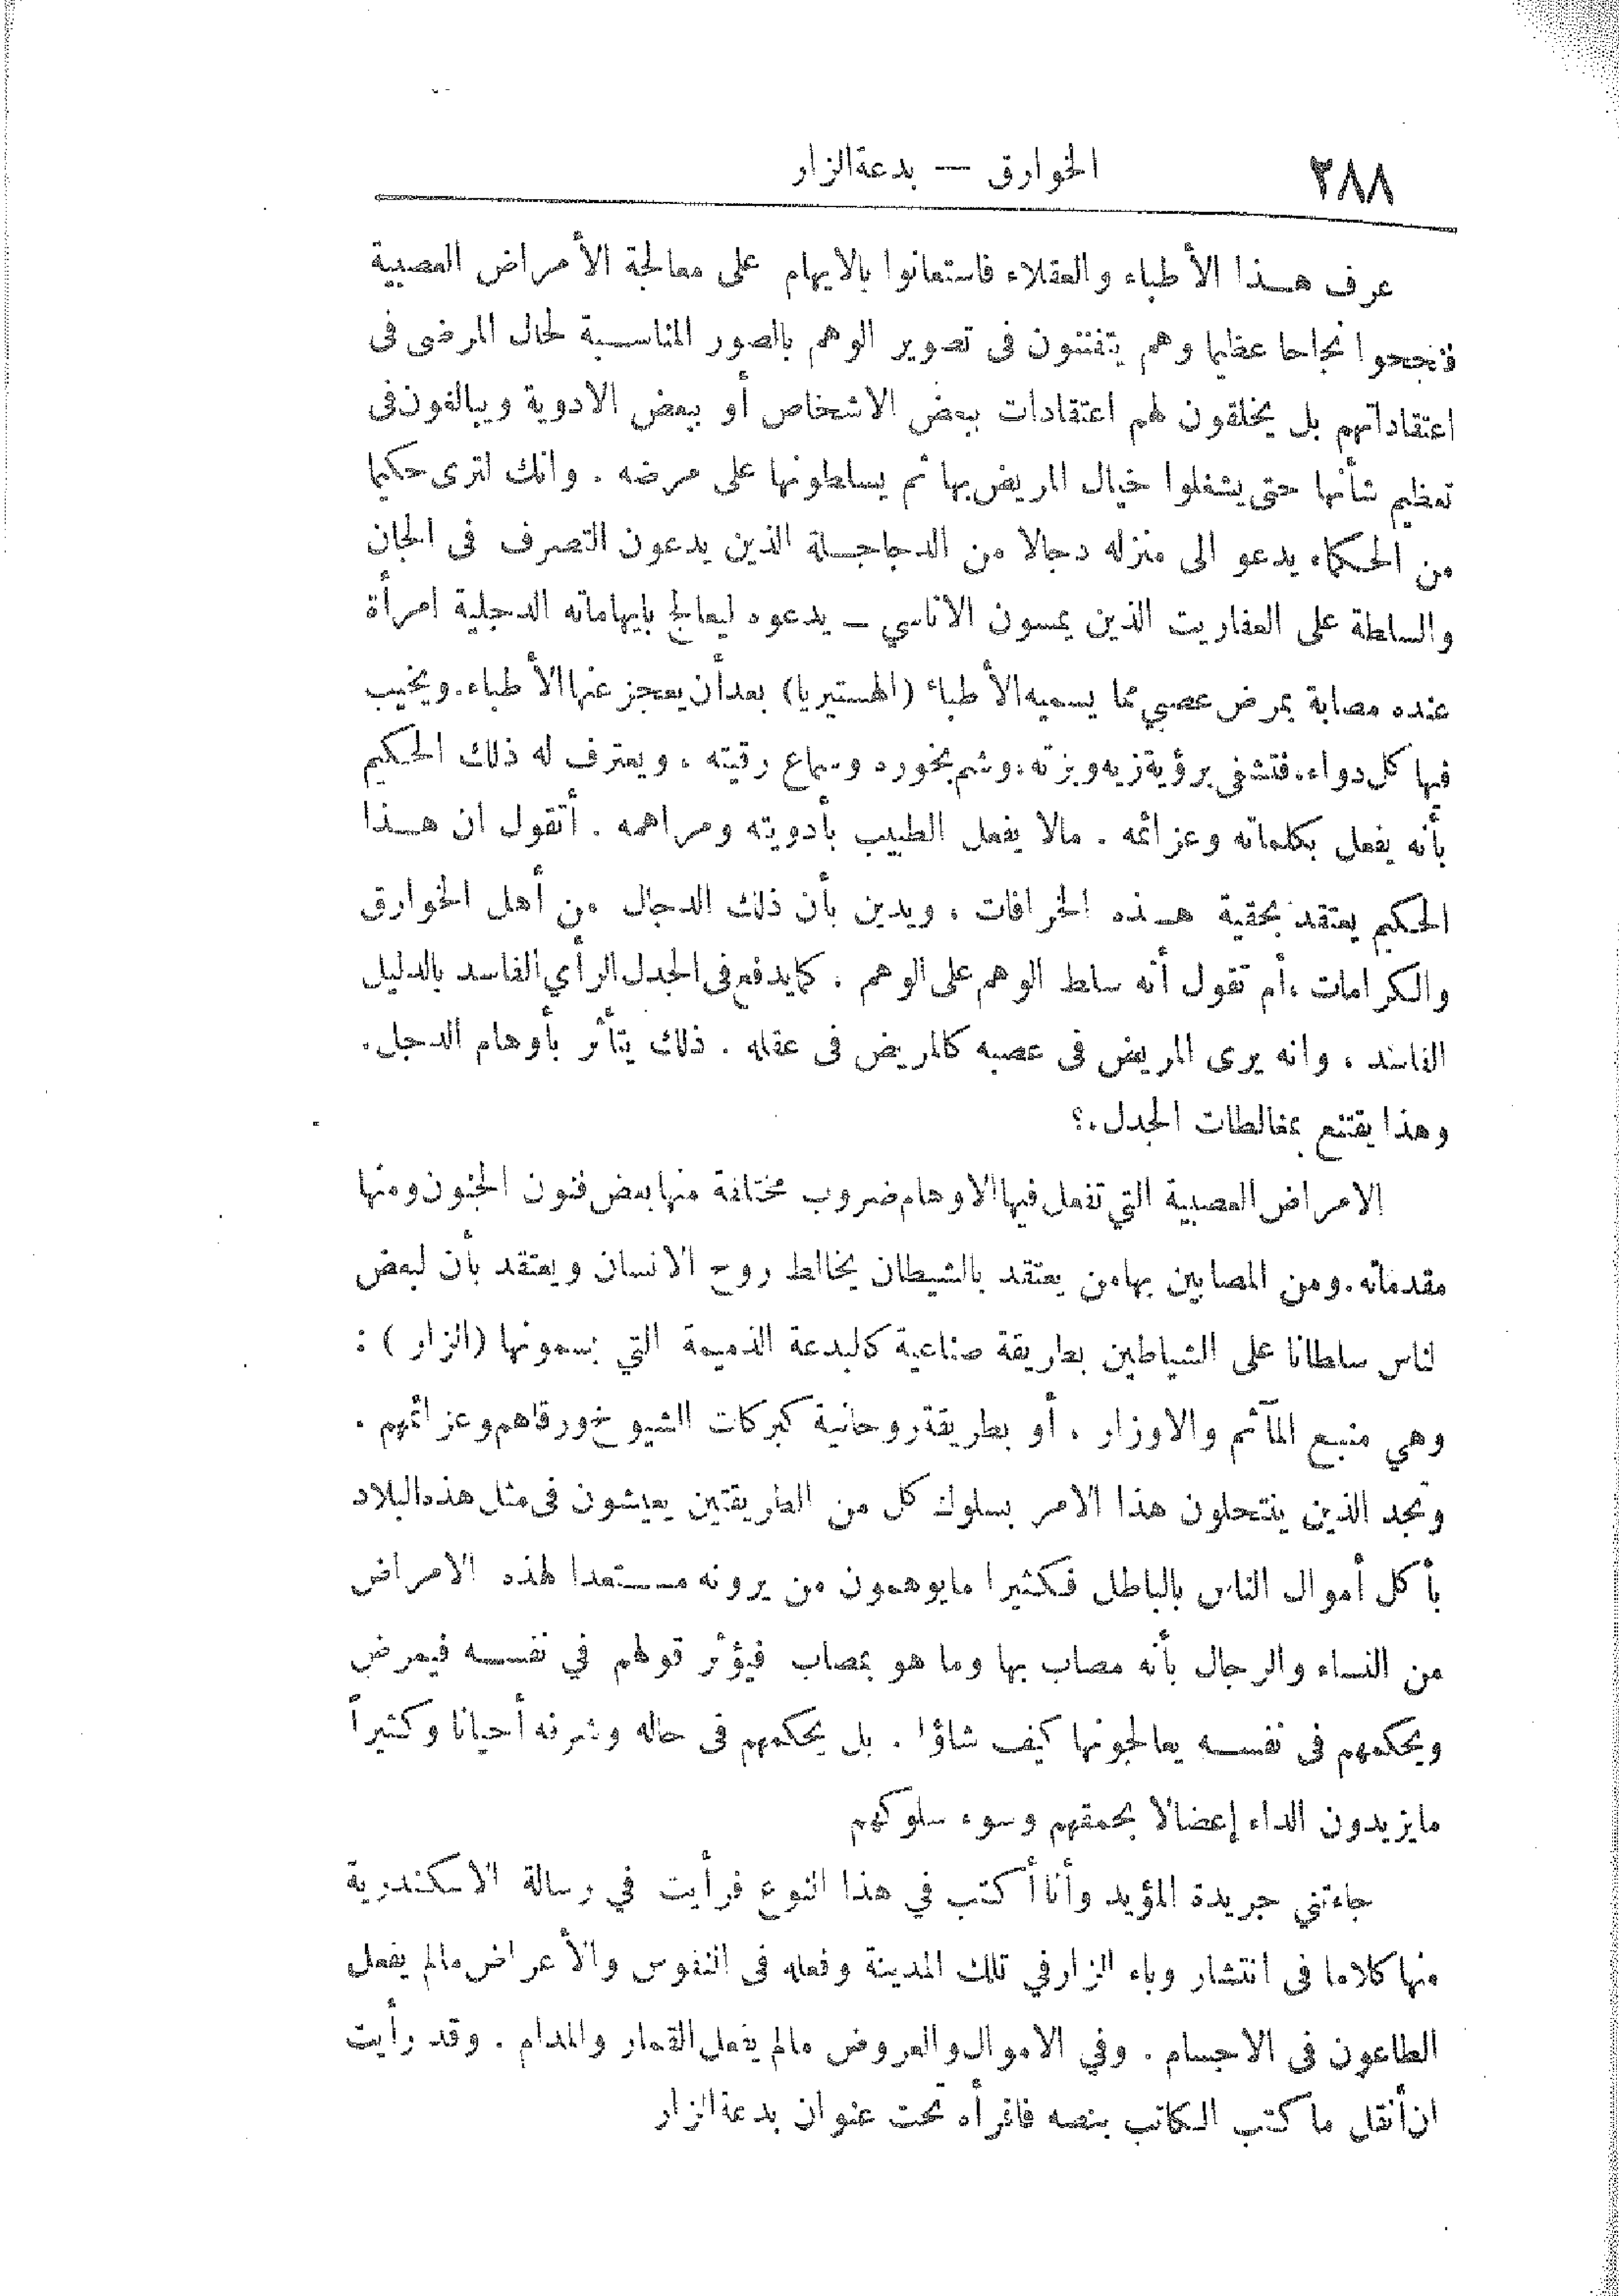 ٢٨٨
الخوارق — بدعة الزار
عرف هـذا الأطباء والعقلاء فاستعانوا بالايهام على معالجة الأمراض العصبية
فنجحوا نجاحا عظيما وهم يتفننون فى تصوير الوهم بالصور المناسبة لحال المرضى فى
اعتقاداتهم بل يخلقون لهم اعتقادات ببعض الاشخاص أو ببعض الادوية ويبالغون فى
تعظيم شأنها حتى يشغلوا خيال المريض بها ثم يسلطونها على مرضه . وانك لترى حكيما
من الحكماء يدعو الى منزله دجالا من الدجاجلة الذين يدعون التصرف فى الجان
والسلطة على العفاريت الذين يمسون الاناسي ــ يدعوه ليعالج بايهاماته الدجلية امرأة
عنده مصابة بمرض عصبي مما يسميه الأطباء (الهستيريا) بعد أن يعجز عنها الأطباء. ويخيب
فيها كل دواء، فتشفى برؤية زيه وبزته، وشم بخوره وسماع رقيته ، ويعترف له ذلك الحكيم
بأنه يفعل بكلماته وعزائمه . مالا يفعل الطبيب بأدويته ومراهمه . أتقول ان هـذا
الحكيم يعتقد بحقية هـذه الخرافات ، ويدين بأن ذلك الدجال من أهل الخوارق
والكرامات ، أم تقول أنه سلط الوهم على الوهم . كما يدفع فى الجدل الرأي الفاسد بالدليل
الفاسد ، وانه يرى المريض فى عصبه كالمريض فى عقله . ذلك يتأثر بأوهام الدجل.
وهذا يقتنع بمغالطات الجدل.؟
الامراض العصبية التي تفعل فيها الاوهام ضروب مختلفة منها بعض فنون الجنون ومنها
مقدماته. ومن المصابين بها من يعتقد بالشيطان يخالط روح الانسان ويعتقد بأن لبعض
لناس سلطانا على الشياطين بطريقة صناعية كالبدعة الذميمة التي يسمونها (الزار ) :
وهي منبع المآثم والاوزار . أو بطريقة روحانية كبركات الشيوخ ورقاهم وعزائمهم .
وتجد الذين ينتحلون هذا الامر بسلوك كل من الطريقتين يعيشون فى مثل هذه البلاد
بأكل أموال الناس بالباطل فـكثيرا مايوهمون من يرونه مـستعدا لهذه الامراض
من النساء والرجال بأنه مصاب بها وما هو بمصاب فيؤثر قولهم في نفسه فيمرض
ويحكمهم فى نفسه يعالجونها كيف شاؤا . بل يحكمهم فى حاله وشرفه أحيانا وكثيراً
مايزيدون الداء إعضالا بحمقهم وسوء سلوكهم
جاءتني جريدة المؤيد وأنا أكتب في هذا النوع فرأيت في رسالة الاسكندرية
منها كلاما فى انتشار وباء الزار في تلك المدينة وفعله فى النفوس والأعراض مالم يفعل
الطاعون فى الاجسام . وفي الاموال والعروض مالم يفعل القمار والمدام . وقد رأيت
ان أنقل ما كتب الـكاتب بنصه فاقرأه تحت عنوان بدعة الزار